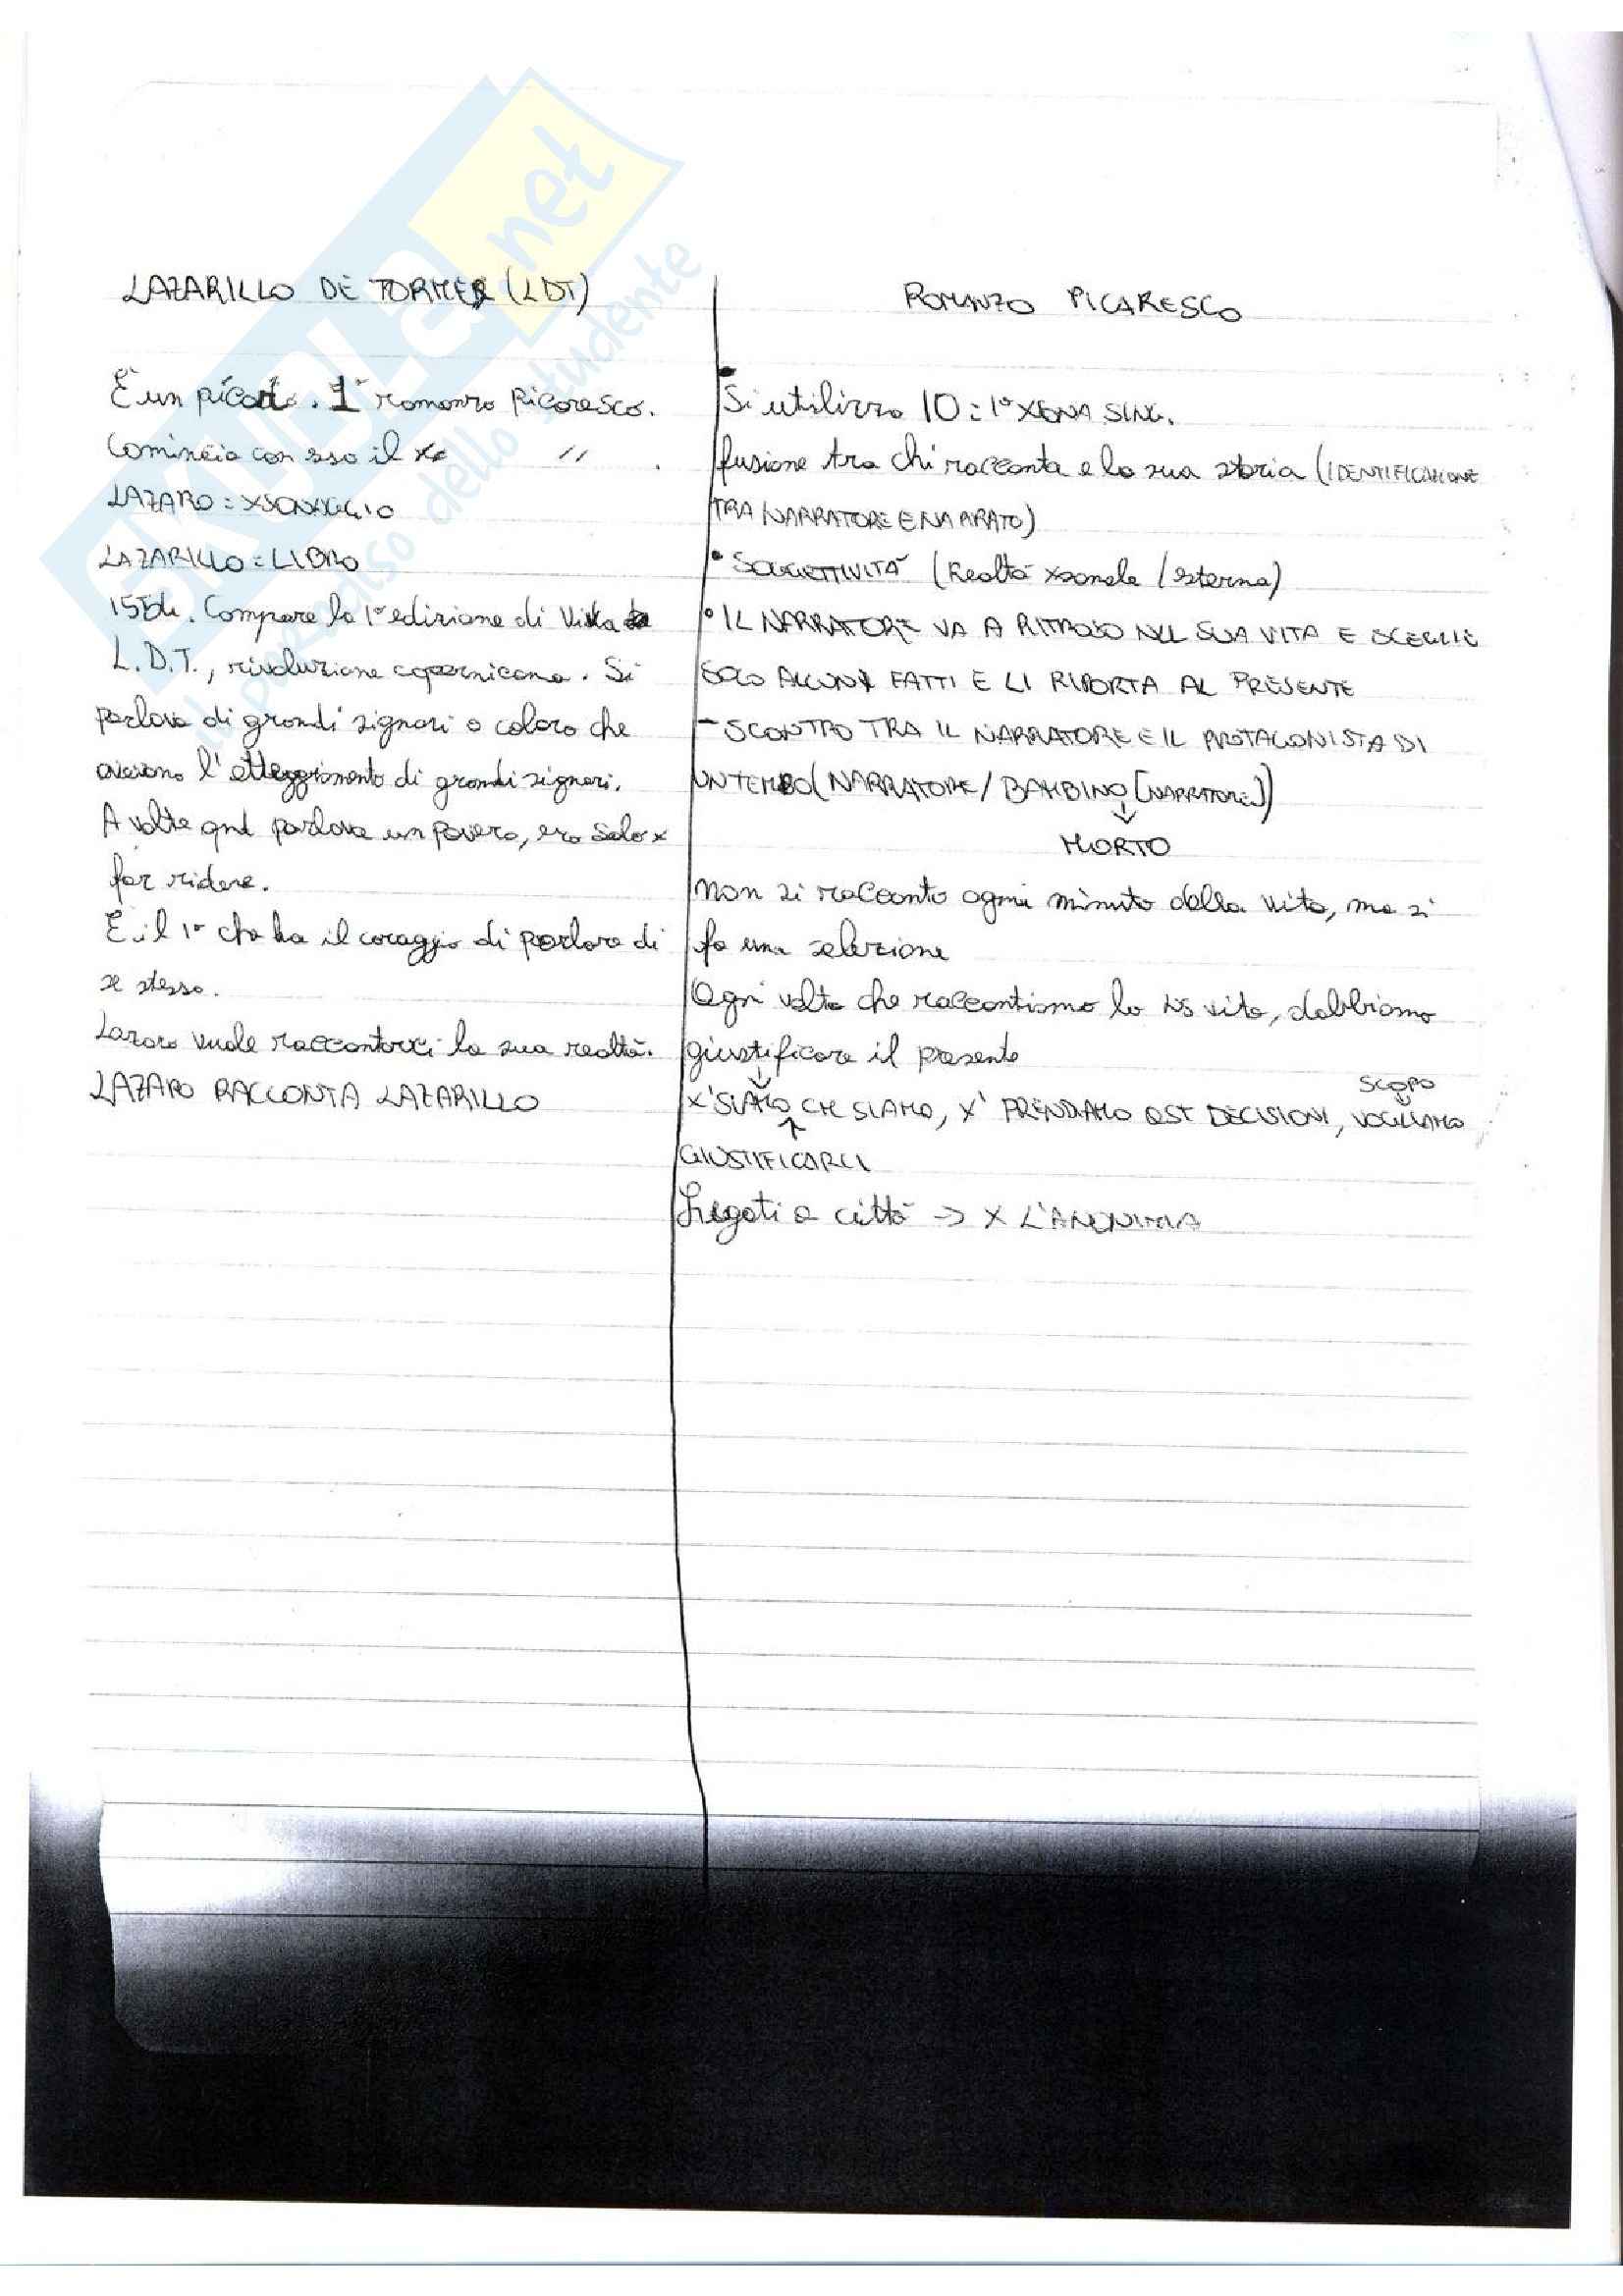 SKUOLA.net
il paradiso dello studente
LAZARILLO DE TORMES (LDT)
È un pícaro. 1° romanzo picaresco.
Comincia con esso il " .
LAZARO = XSONAGGIO
LAZARILLO = LIBRO
1554. Compare la 1° edizione di Vita
L.D.T., rivoluzione copernicana. Si
parlava di grandi signori o coloro che
avevano l'atteggiamento di grandi signori.
A volte qnd parlava un povero, era solo x
far ridere.
È il 1° che ha il coraggio di parlare di
se stesso.
Lazaro vuole raccontarci la sua realtà.
LAZARO RACCONTA LAZARILLO
ROMANZO PICARESCO
Si utilizza IO = 1° XSONA SING.
fusione tra chi racconta e la sua storia (IDENTIFICAZIONE
TRA NARRATORE E NARRATO)
• SOGGETTIVITÀ (Realtà xsonale / esterna)
• IL NARRATORE VA A RITROSO NEL SUA VITA E SCEGLIE
SOLO ALCUNI FATTI E LI RIPORTA AL PRESENTE
- SCONTRO TRA IL NARRATORE E IL PROTAGONISTA DI
UN TEMPO (NARRATORE / BAMBINO [NARRATORE])
↓
MORTO
Non si racconta ogni minuto della vita, ma si
fa una selezione
Ogni volta che raccontiamo la ns vita, dobbiamo
giustificare il presente
↓ SCOPO
X' SIAMO CHI SIAMO, X' PRENDIAMO QST DECISIONI, VOGLIAMO
↑
GIUSTIFICARCI
Legati a città → X L'ANONIMIA